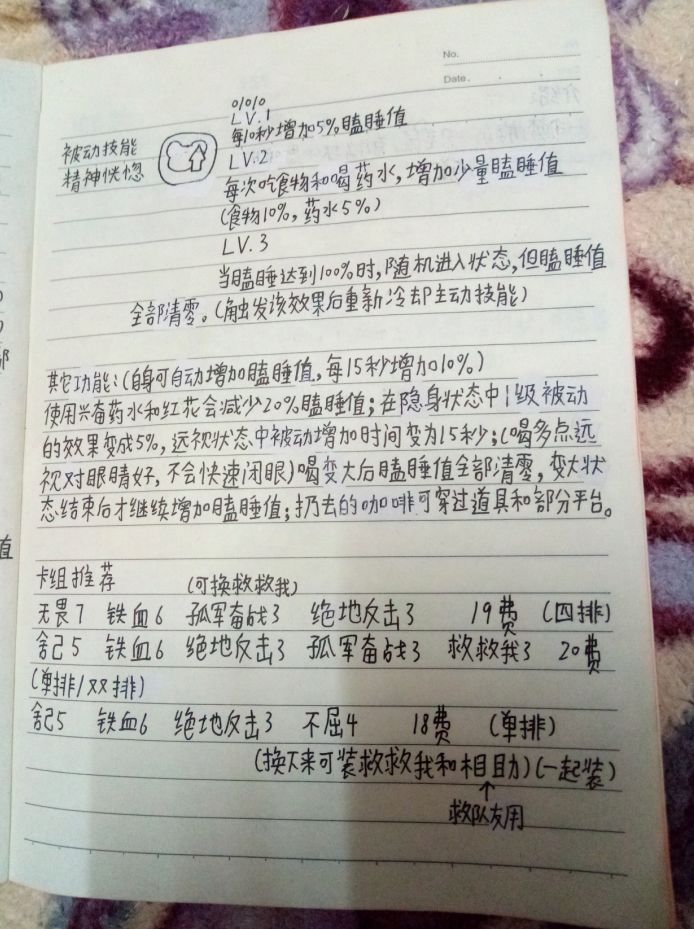 No.
Date.
LV.1
被动技能
精神恍惚
每10秒增加5%瞌睡值
LV.2
每次吃食物和喝药水，增加少量瞌睡值
(食物10%，药水5%)
LV.3
当瞌睡达到100%时，随机进入状态，但瞌睡值
全部清零。(触发该效果后重新冷却主动技能)
其它功能：(自身可自动增加瞌睡值，每15秒增加10%)
使用兴奋药水和红花会减少20%瞌睡值；在隐身状态中1级被动
的效果变成5%，远视状态中被动增加时间变为15秒；(喝多点远
视对眼睛好，不会快速闭眼)喝变大后瞌睡值全部清零，变大状
态结束后才继续增加瞌睡值；扔去的咖啡可穿过道具和部分平台。
卡组推荐 (可换救救我)
无畏7 铁血6 孤军奋战3 绝地反击3 19费 (四排)
舍己5 铁血6 绝地反击3 孤军奋战3 救救我3 20费
(单排/双排)
舍己5 铁血6 绝地反击3 不屈4 18费 (单排)
(换下来可装救救我和相助)(一起装)
↑
救队友用
值